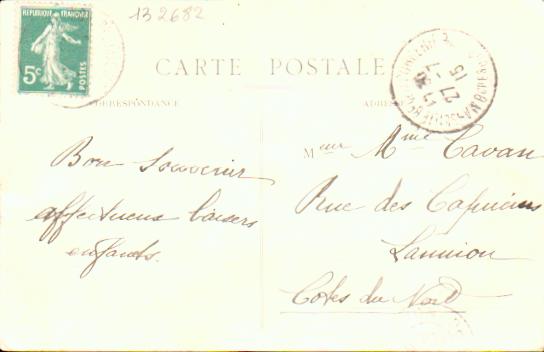 132682
REPUBLIQUE FRANÇAISE
5c
POSTES
CARTE POSTALE
CORRESPONDANCE
ADRESSE
Bon Souvenir
affectueux baisers
enfants.
Meur Mme Cavan
Rue des Capucins
Lannion
Côtes du Nord